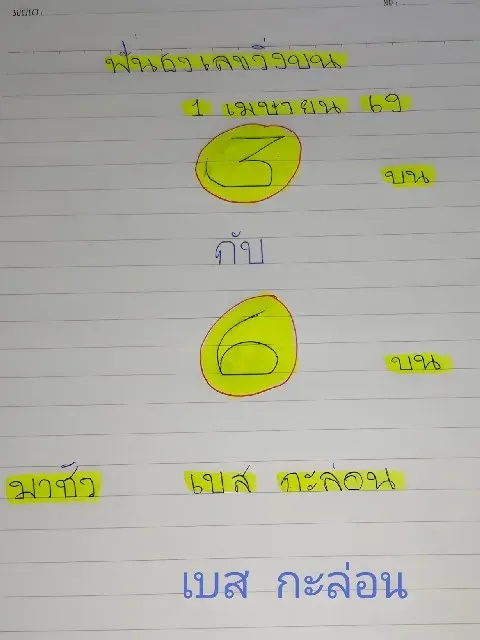 SUBJECT:
NO:
ฟันธงเลขวิ่งบน
1 เมษายน 69
3 บน
กับ
6 บน
มาชัว เบส กะล่อน
เบส กะล่อน